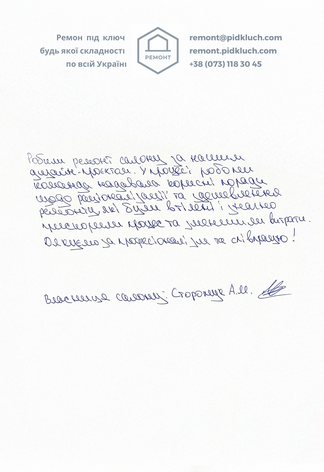 Ремонт під ключ
будь якої складності
по всій Україні
РЕМОНТ
remont@pidkluch.com
remont.pidkluch.com
+38 (073) 118 30 45
Робили ремонт салону за нашим
дизайн-проєктом. У процесі роботи
команда надавала корисні поради
щодо раціоналізації та здешевлення
ремонту, які були втілені і
прискорили процес та зменшили витрати.
Дякуємо за професіоналізм та співпрацю!
Власниця салону: Сторожце А.М.